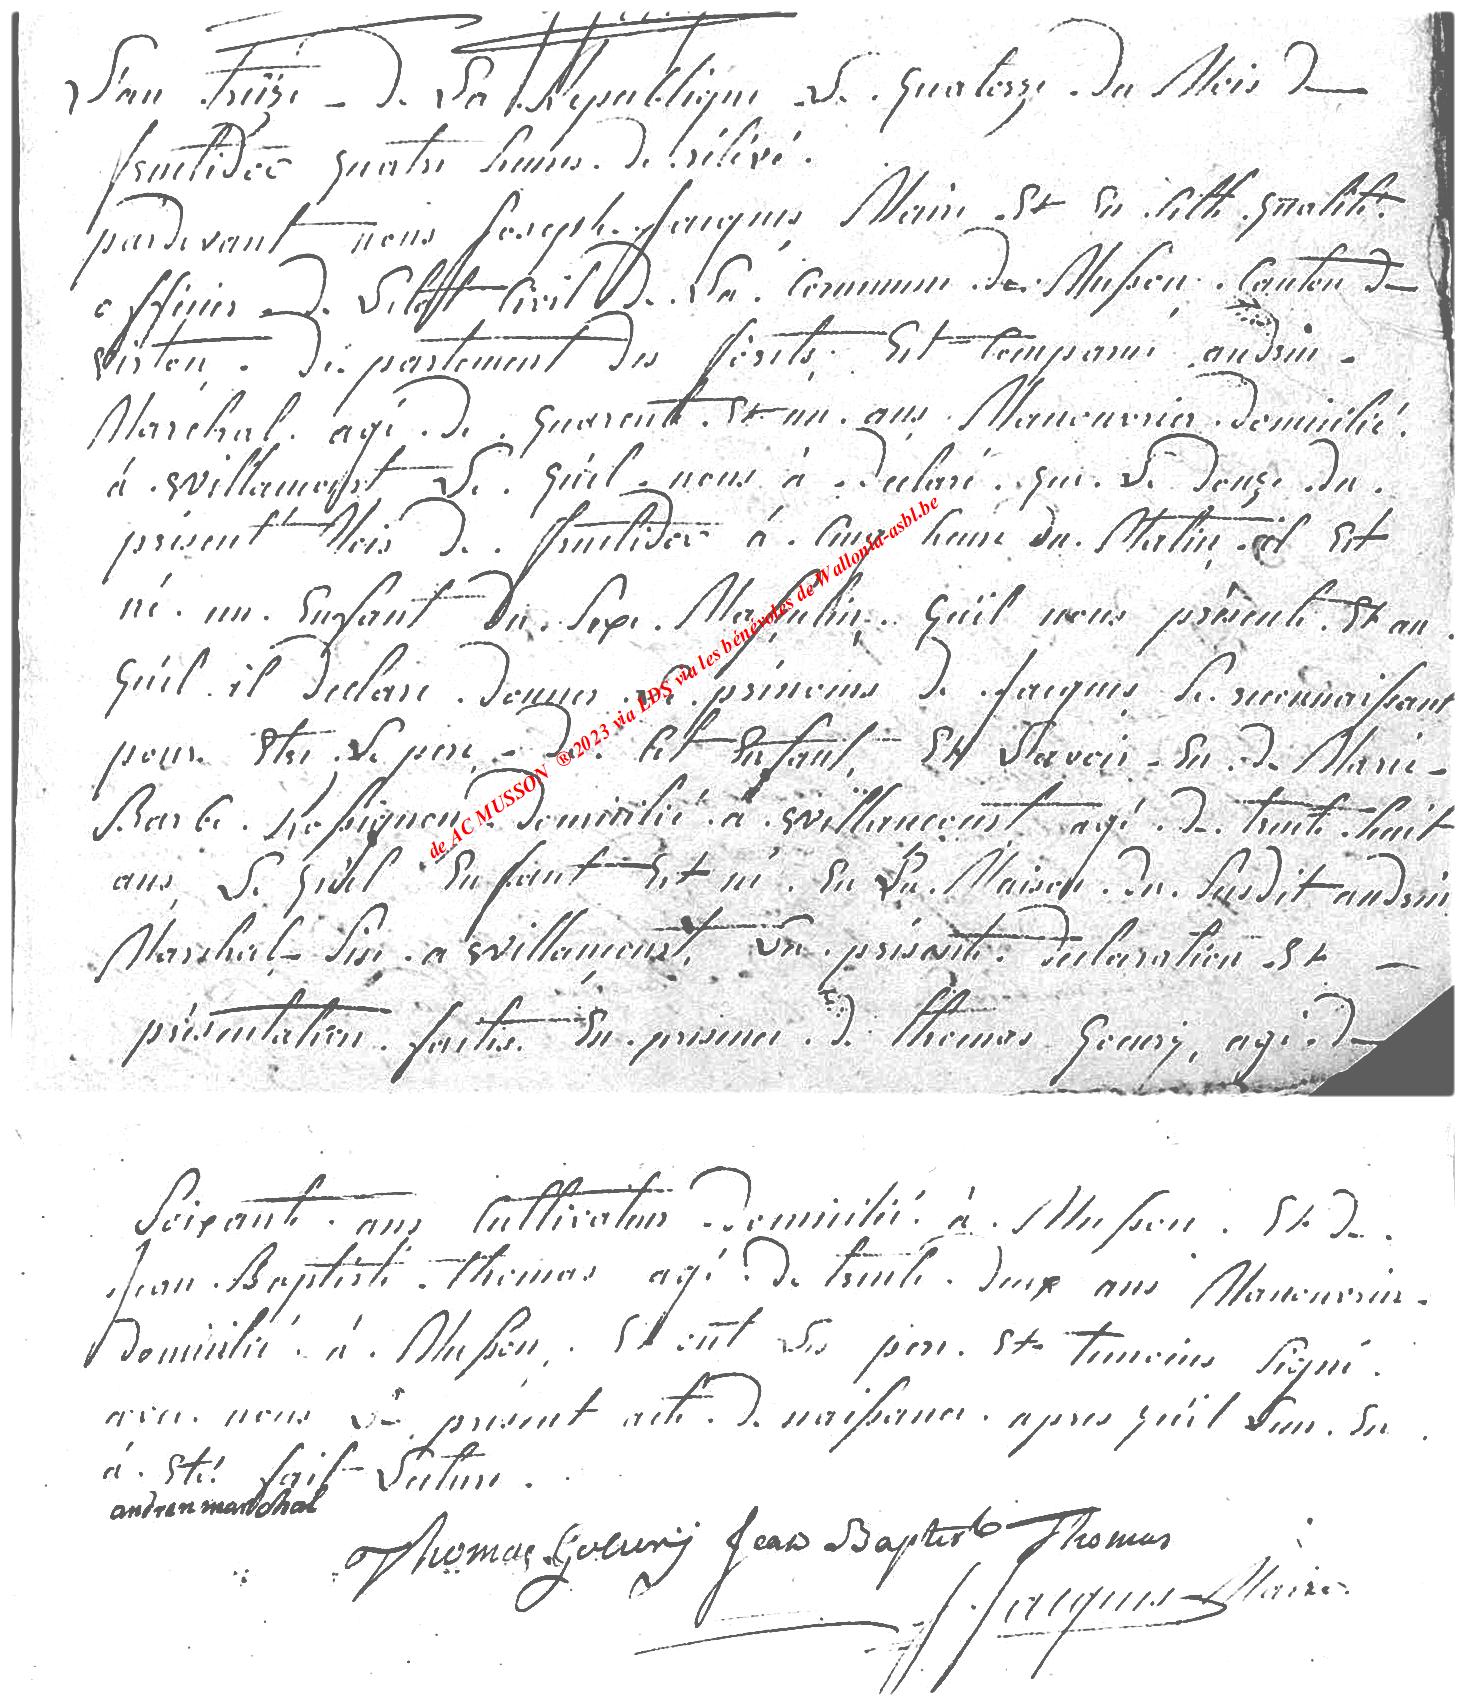 L'an treize de La Republique Le quatorze du Mois de
fructidor quatre heures de rélévé.
pardevant nous Joseph Jacques Maire Et En cette qualité
officier de L'état Civil de La Commune de Musson Canton de
virton, departement des forêts, Est Comparué andrien
Marchal agé de quarente Et un ans Manouvrier domicilié
à Willancourt Le quel nous à declaré que Le douze du
présent Mois de fructidor à Cinq heure du Matin il Est
né un Enfant du Sexe Masculin quil nous présente Et au
quel il declare donner Le prénoms de Jacques Le reconnaissant
pour Etre Le pere de Cet Enfant, Et L'avoir Eu de Marie
Barbe Rossignon domicilié à Willancourt agé de trente huit
ans, Le quel Enfant Est né En La Maison du Susdit andrien
Marchal Sise a Willancourt, La présente declaration Et
présentation faites En présence de Thomas Goury, agé de
Soixante ans Cultivateur domicilié à Musson Et de
Jean Baptiste Thomas agé de trente deux ans Manouvrier
domicilié à Musson, Et ont Les pere Et temoins Signé
avec nous Le présent acte de naissance apres quil Leur En
à Eté fait Lecture.
andrien marchal
Thomas Goury Jean Baptist Thomas
JJacques Maire
de AC MUSSON ®2023 via LDS via les bénévoles de Wallonia-asbl.be